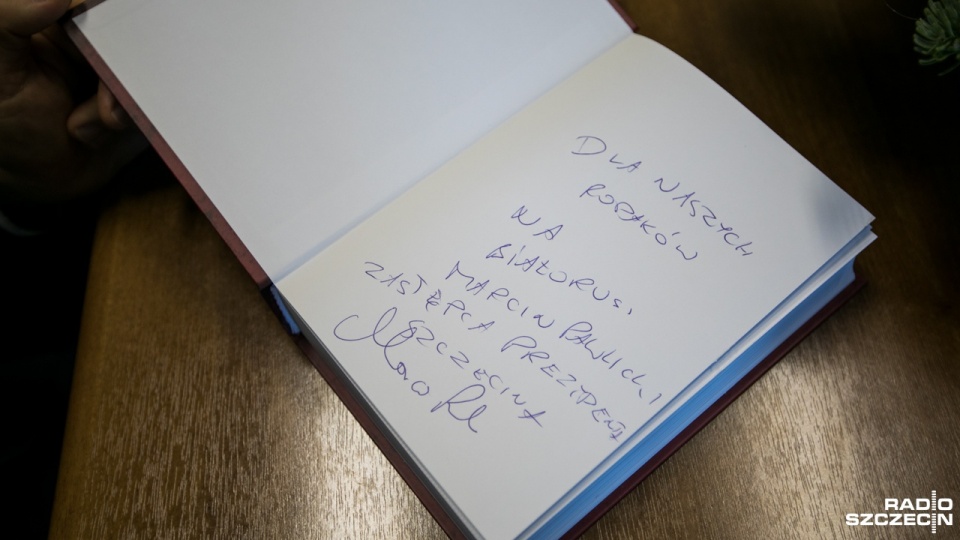 DLA NASZYCH
RODAKÓW
NA
BIAŁORUSI,
MARCIN PAWLICKI
ZASTĘPCA PREZYDENTA
SZCZECINA
RADIO
SZCZECIN